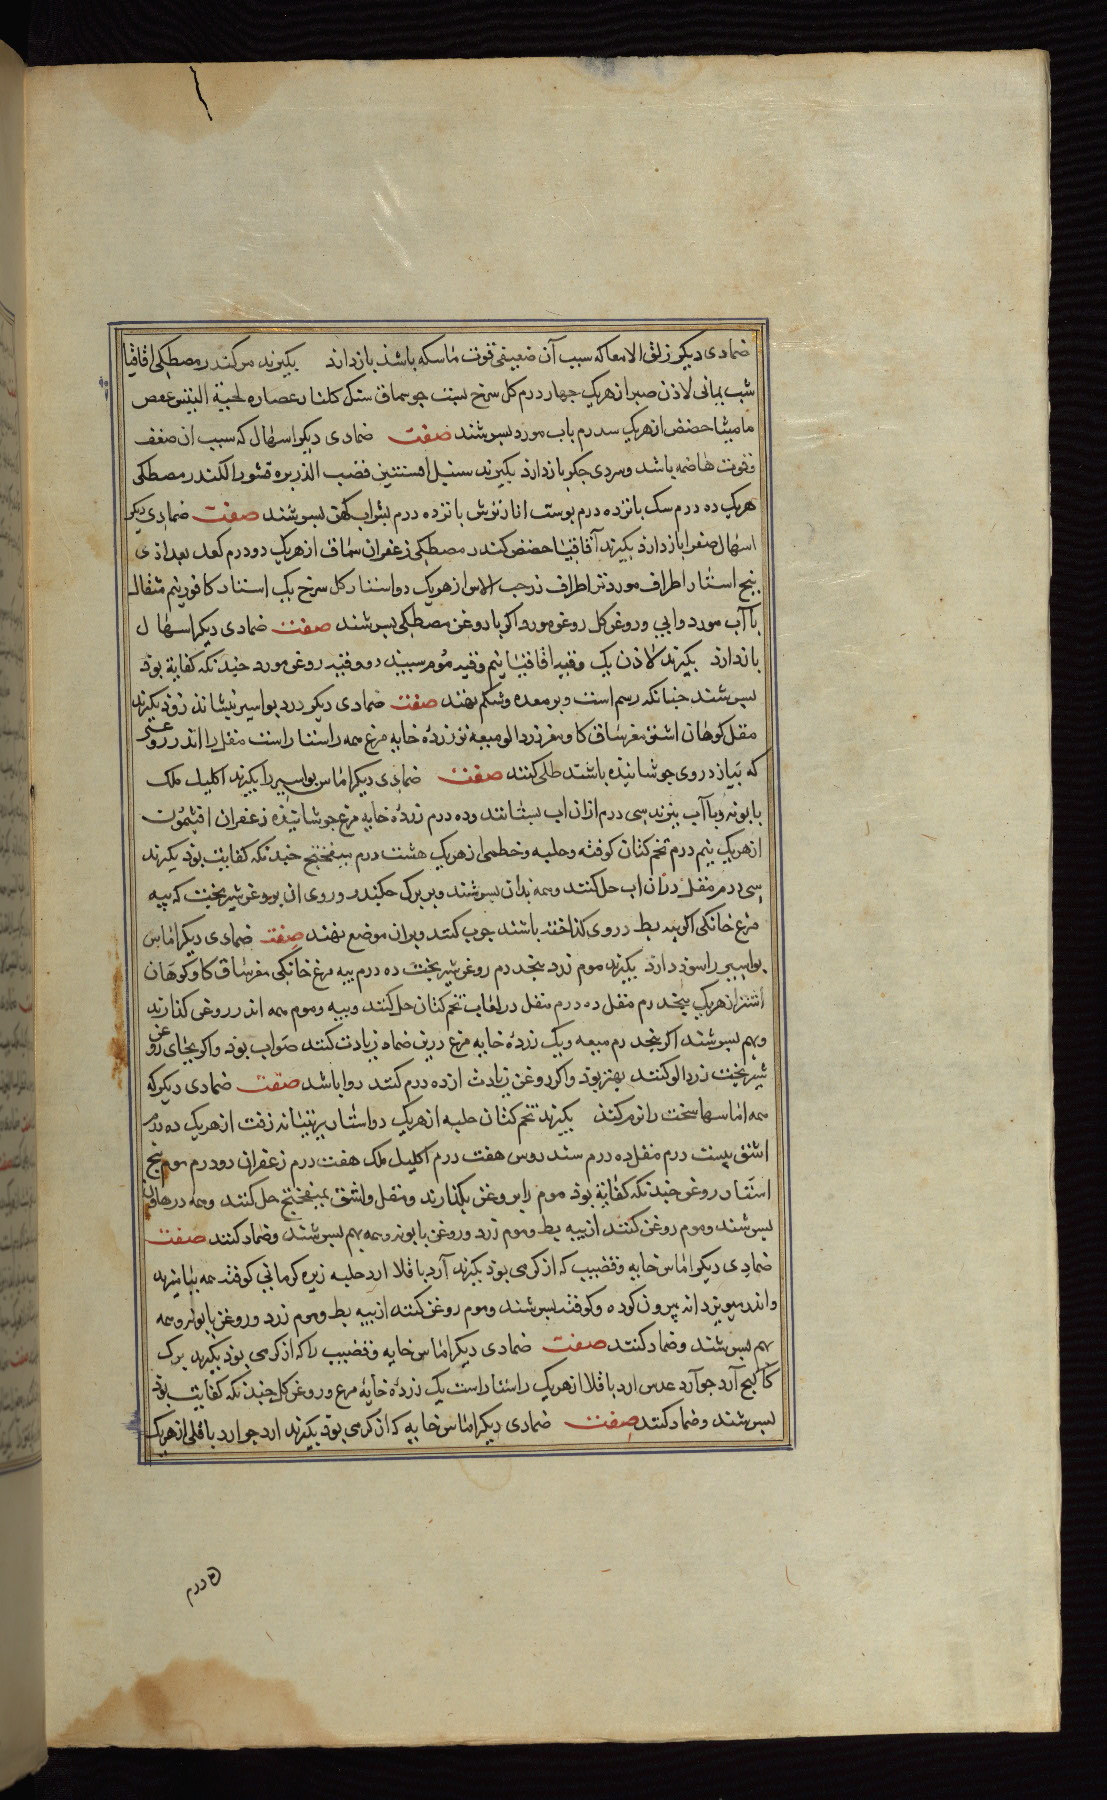 ضمادی دیکر زلق الامعا که سبب آن ضعیفی قوت ماسکه باشد بازدارد بکیرند مر کندر مصطکی اقاقیا
شب یمانی لاذن صبر از هریک جهار درم کل سرخ بست جو سماق سنک کلنار عصاره لحیة التیس عفص
مامیثا حضض از هریک سه درم باب مورد بسرشند صفت ضمادی دیکر اسهال که سبب ان ضعف
قوت هاضمه باشد و سردی جکر بازدارد بکیرند سنبل افسنتین قصب الذریره قشور الکندر مصطکی
هریک ده درم سک بانزده درم بوست انار ترش بانزده درم بشراب کهن بسرشند صفت ضمادی دیکر
اسهال صفرا بازدارد بکیرند آقاقیا حضض کندر مصطکی زعفران سماق از هریک دو درم کعک بغدادی
بنج استار اطراف مورد تر اطراف رز حب الاس از هریک دو استار کل سرخ یک استار کافور نیم مثقال
با آب مورد و ابی و روغن کل روغن مورد اکر با روغن مصطکی بسرشند صفت ضمادی دیکر اسهال
بازدارد بکیرند لاذن یک وقیه اقاقیا نیم وقیه موم سبید دو وقیه روغن مورد جندنکه کفایة بود
بسرشند جنانکه رسم است و بر معده و شکم نهند صفت ضمادی دیکر درد بواسیر بنشاند زود بکیرند
مقل کوهان اشتر مغز ساق کاو مغز زردالو میعه تر زرده خایه مرغ همه راستاراست مقل را اندر روغنی
که بیاز در وی جوشانیده باشند طلی کنند صفت ضمادی دیکر اماس بواسیر را بکیرند اکلیل ملک
بابونه و با آب ببزند سی درم ازان اب بستانند و ده درم زرده خایه مرغ جوشانیده زعفران افیون
از هریک نیم درم تخم کتان کوفته و حلبه و خطمی از هریک هشت درم میفختج جندنکه کفایت بود بکیرند
سی درم مقل دران اب حل کنند و همه بدان بسرشند و بر برک جکندر و روی ان بروغن شیربخت که بیه
مرغ خانکی اکر بیه بط در وی کداخته باشند جرب کنند و بران موضع نهند صفت ضمادی دیکر اماس
بواسیر را سود دارد بکیرند موم زرد بنجدرم روغن شیربخت ده درم بیه مرغ خانکی مغز ساق کاو کوهان
اشتر از هریک بنجدرم مقل ده درم مقل در لعاب تخم کتان حل کنند و بیه و موم همه اندر روغن کدازند
و بهم بسرشند اکر بنجدرم میعه و یک زرده خایه مرغ درین ضماد زیادت کنند صواب بود و اکر بجای روغن
شیربخت زردالو کنند بهتر بود و اکر روغن زیادت از ده درم کنند روا باشد صفت ضمادی دیکر که
همه اماسها سخت را نرم کند بکیرند تخم کتان حلبه از هریک دو استار زفت از هریک ده درم
اشق بیست درم مقل ده درم سندروس هفت درم اکلیل ملک هفت درم زعفران دو درم موم بنج
استار روغن جندنکه کفایة بود موم را بروغن بکدازند و مقل و اشق بمیفختج حل کنند و همه در هاون
بسرشند و موم روغن کنند از بیه بط و موم زرد و روغن بابونه و همه بهم بسرشند و ضماد کنند صفت
ضمادی دیکر اماس خایه و قضیب که از کرمی بود بکیرند آرد باقلا ارد حلبه زیره کرمانی کوفته همه بیامیزند
و اندر مویز دانه بیرون کرده و کوفته بسرشند و موم روغن کنند از بیه بط و موم زرد و روغن بابونه و همه
بهم بسرشند و ضماد کنند صفت ضمادی دیکر اماس خایه و قضیب را که از کرمی بود بکیرند برک
کاکنج آرد جو آرد عدس ارد باقلا از هریک راستاراست یک زرده خایه مرغ و روغن کل جندنکه کفایت بود
بسرشند و ضماد کنند صفت ضمادی دیکر اماس خایه که از کرمی بود بکیرند ارد جو ارد باقلی از هریک
درم